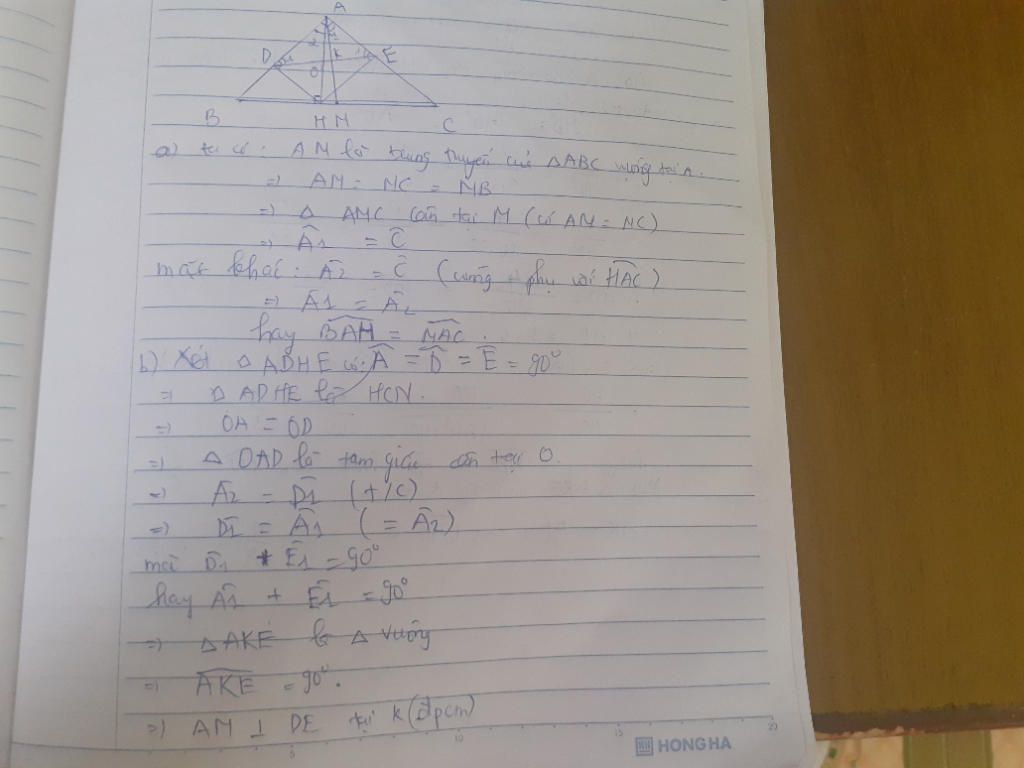 A
D
E
O
K
B
H M
C
a) ta có: AM là trung tuyến của △ABC vuông tại A.
=> AM = MC = MB
=> △ AMC cân tại M (vì AM = MC)
=> Â1 = Ĉ
mặt khác: Â2 = Ĉ (cùng phụ với HAC)
=> Â1 = Â2
hay BAH = MAC.
b) Xét △ ADHE có: Â = D̂ = Ê = 90°
=> △ ADHE là HCN.
=> OA = OD
=> △ OAD là tam giác cân tại O.
=> Â2 = D̂1 (t/c)
=> D̂1 = Â1 (= Â2)
mà D̂1 + Ê1 = 90°
hay Â1 + Ê1 = 90°
=> △AKE là △ vuông
=> AKE = 90°.
=> AM ⊥ DE tại K (đpcm)
5 10 15 20
HONG HA